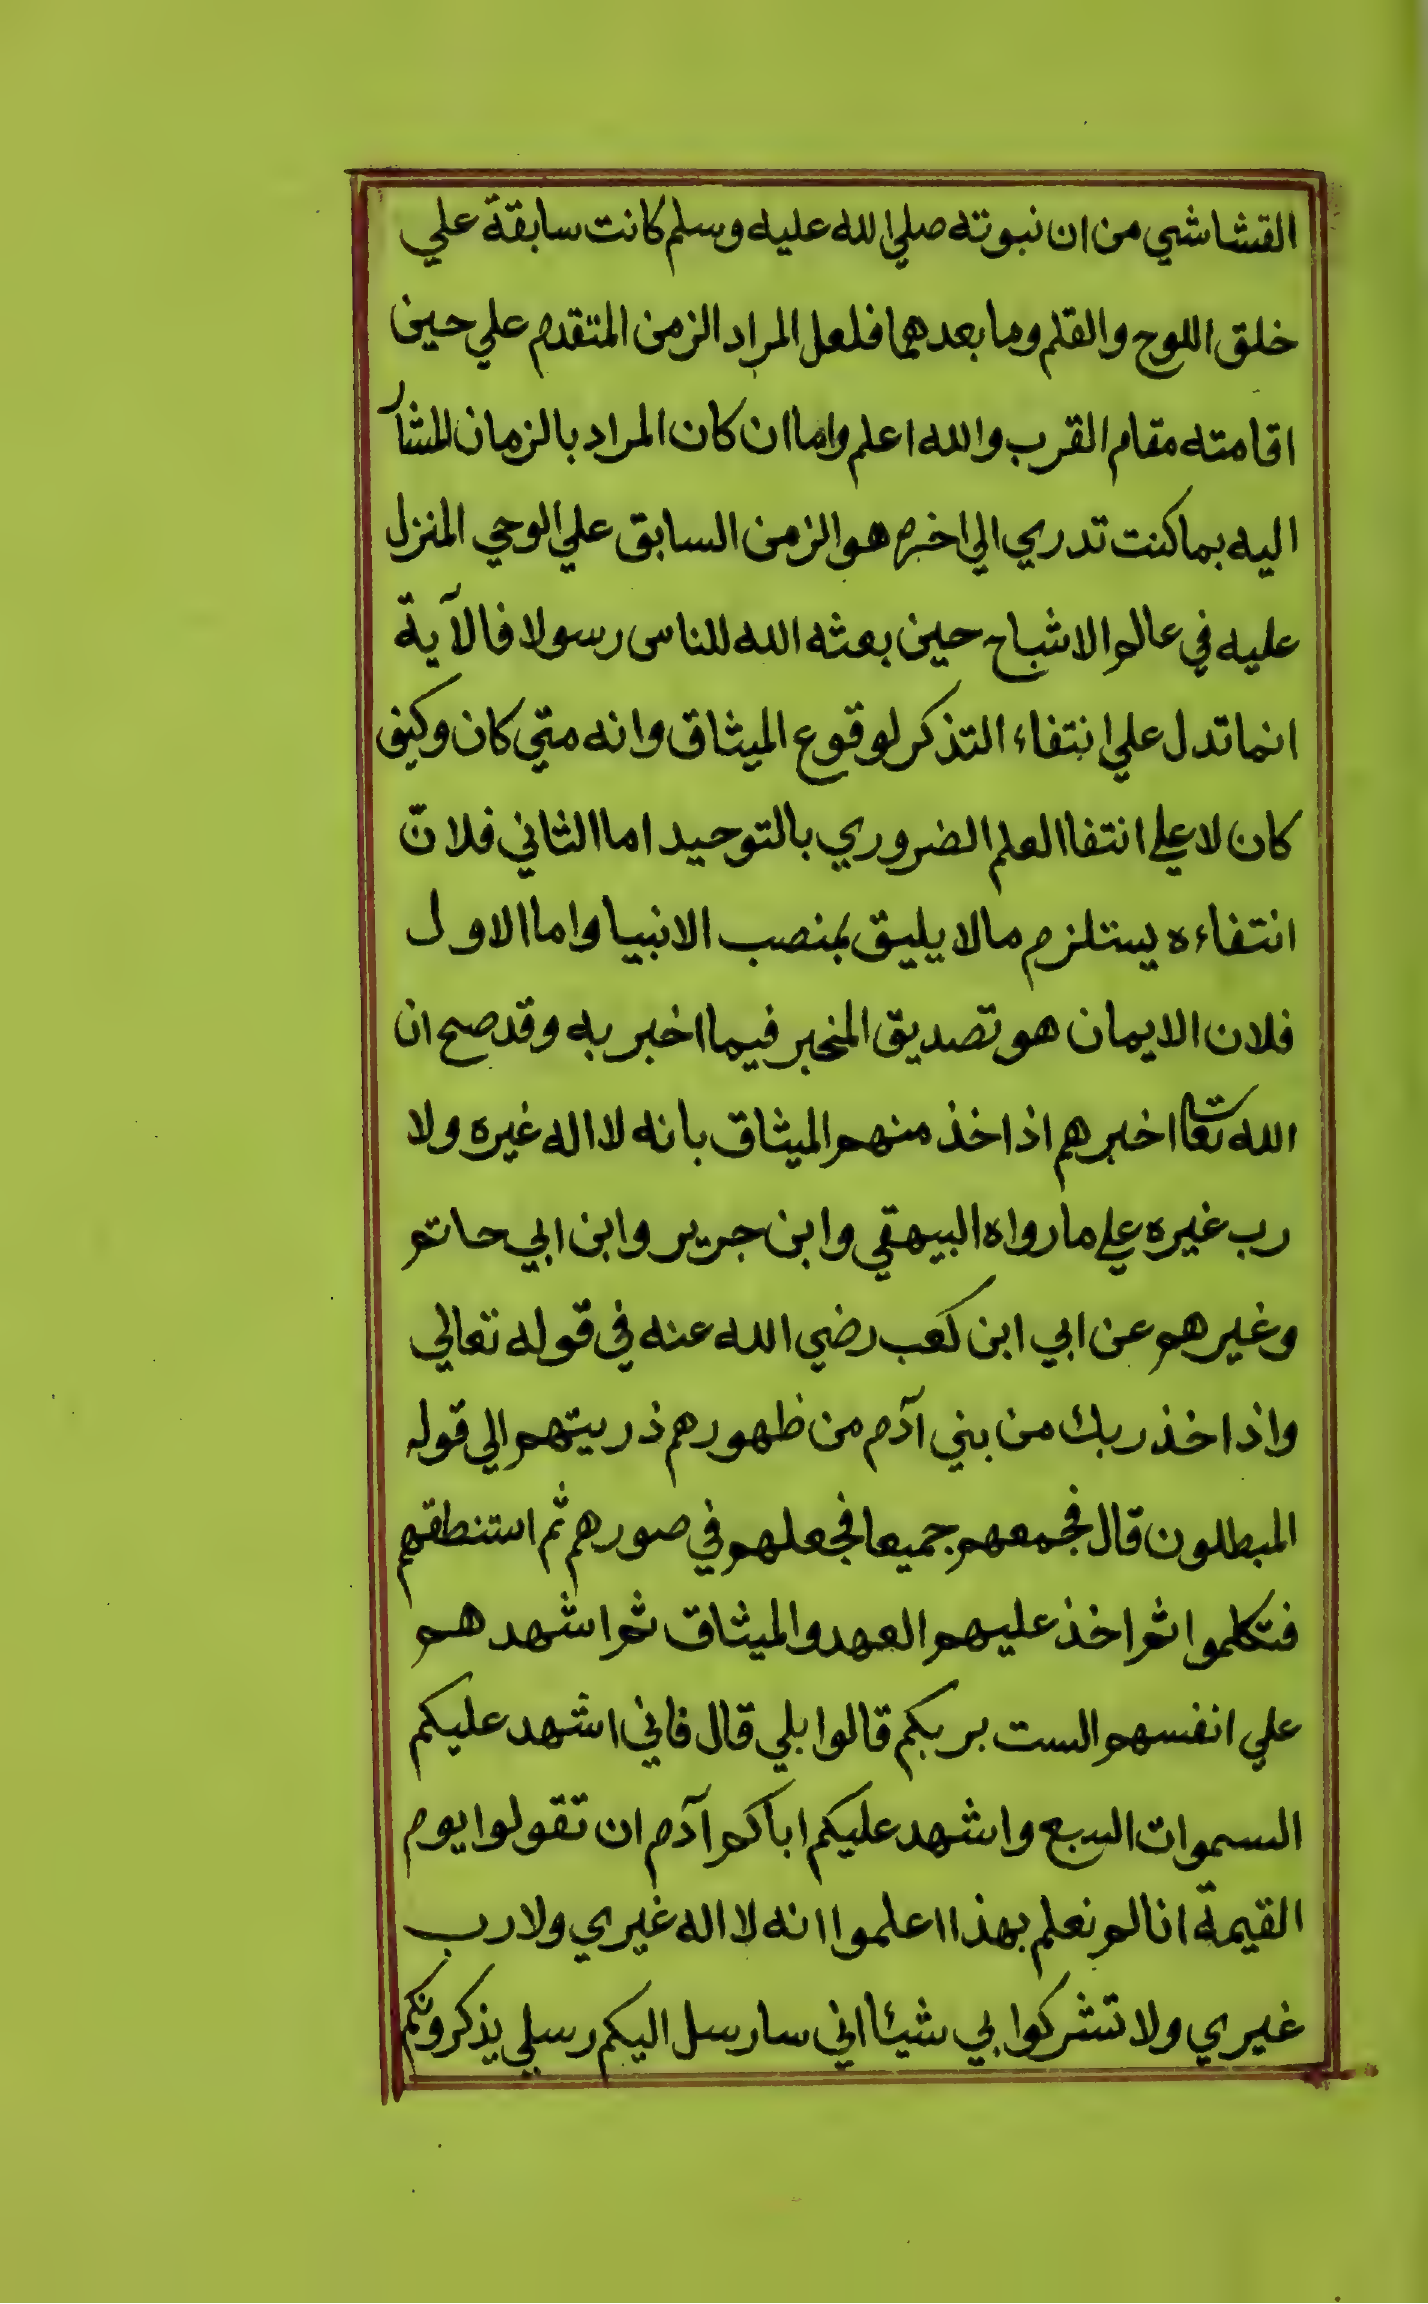 القشاشي من ان نبوته صلى الله عليه وسلم كانت سابقة علي
خلق اللوح والقلم وما بعدهما فلعل المراد الزمن المتقدم علي حين
اقامته مقام القرب والله اعلم واما ان كان المراد بالزمان المشار
اليه بما كنت تدري الي اخره هو الزمن السابق علي الوحي المنزل
عليه في عالم الاشباح حين بعثه الله للناس رسولا فالآية
انما تدل علي انتفاء التذكر لوقوع الميثاق وانه متي كان وكيف
كان لا علي انتفا العلم الضروري بالتوحيد اما الثاني فلانّ
انتفاءه يستلزم مالا يليق بمنصب الانبيا واما الاول
فلان الايمان هو تصديق المخبر فيما اخبر به وقد صح ان
الله تعا اخبرهم اذ اخذ منهم الميثاق بانه لا اله غيره ولا
رب غيره علي ما رواه البيهقي وابن جرير وابن ابي حاتم
وغيرهم عن ابي ابن كعب رضي الله عنه في قوله تعالي
واذ اخذ ربك من بني آدم من ظهورهم ذريتهم الي قوله
المبطلون قال فجمعهم جميعا فجعلهم في صورهم ثم استنطقهم
فتكلموا ثم اخذ عليهم العهد والميثاق ثم اشهدهم
علي انفسهم الست بربكم قالوا بلي قال فاني اشهد عليكم
السموات السبع واشهد عليكم اباكم آدم ان تقولوا يوم
القيمة انا لم نعلم بهذا اعلموا انه لا اله غيري ولا رب
غيري ولا تشركوا بي شيئا اني سارسل اليكم رسلي يذكرونكم